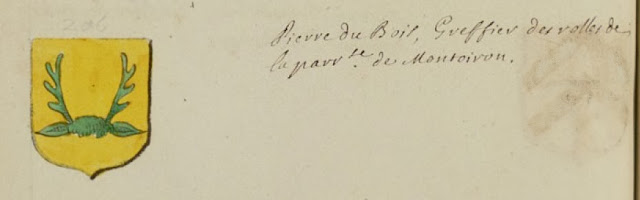 206
Pierre du Bois, Greffier des rolles de
la parr.se de Montoiron.